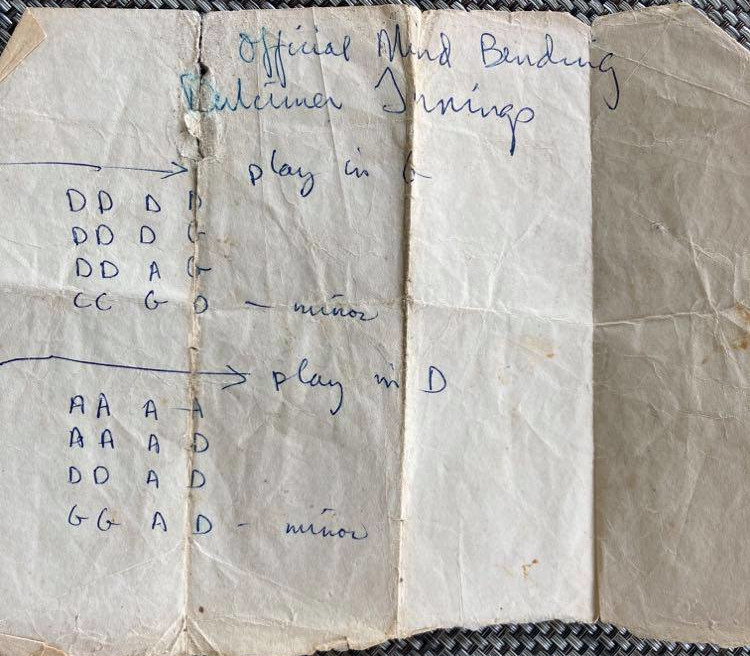 Official Mind Bending
Dulcimer Tunings
play in G
DD D D
DD D G
DD A G
CC G D - minor
play in D
AA A A
AA A D
DD A D
GG A D - minor